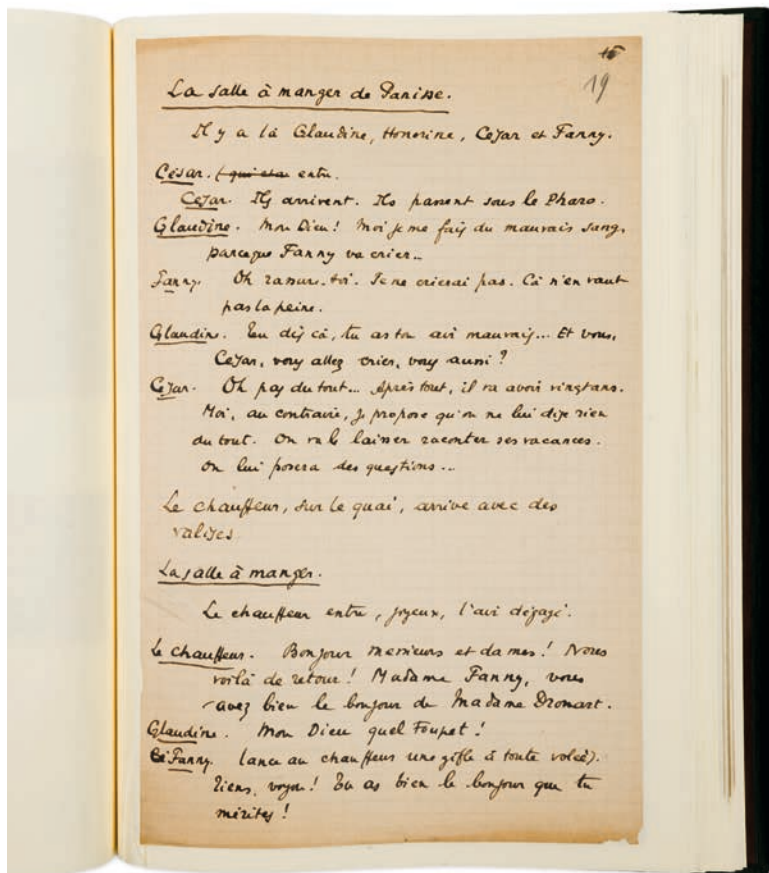 15
19
La salle à manger de Panisse.
Il y a là Glaudine, Honorine, César et Fanny.
César. (qui est entre.
César. Ils arrivent. Ils passent sous le Pharo.
Glaudine. Mon Dieu! Moi je me fais du mauvais sang,
parceque Fanny va crier..
Fanny. Oh rassure-toi. Je ne crierai pas. Cà n'en vaut
pas la peine.
Glaudine. Tu dis cà, tu as ton air mauvais... Et vous,
César, vous allez crier, vous aussi?
César. Oh pas du tout... Après tout, il va avoir vingt ans.
Moi, au contraire, je propose qu'on ne lui dise rien
du tout. On va le laisser raconter ses vacances.
On lui posera des questions...
Le chauffeur, sur le quai, arrive avec des
valises
La salle à manger.
Le chauffeur entre, joyeux, l'air dégagé.
Le chauffeur. Bonjour messieurs et dames! Nous
voilà de retour! Madame Fanny, vous
avez bien le bonjour de Madame Dromart.
Glaudine. Mon Dieu quel toupet!
Cé Fanny. lance au chauffeur une gifle à toute volée).
Tiens, voyou! Tu as bien le bonjour que tu
mérites!